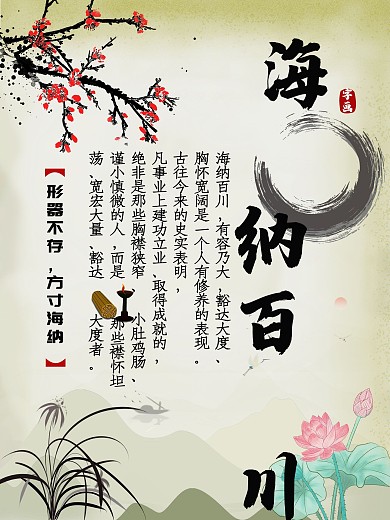 海纳百川
字画
海纳百川,有容乃大,豁达大度、
胸怀宽阔是一个人有修养的表现。
古往今来的史实表明,
凡事业上建功立业、取得成就的,
绝非是那些胸襟狭窄、小肚鸡肠、
谨小慎微的人,而是那些襟怀坦
荡、宽宏大量、豁达大度者。
【形器不存,方寸海纳】